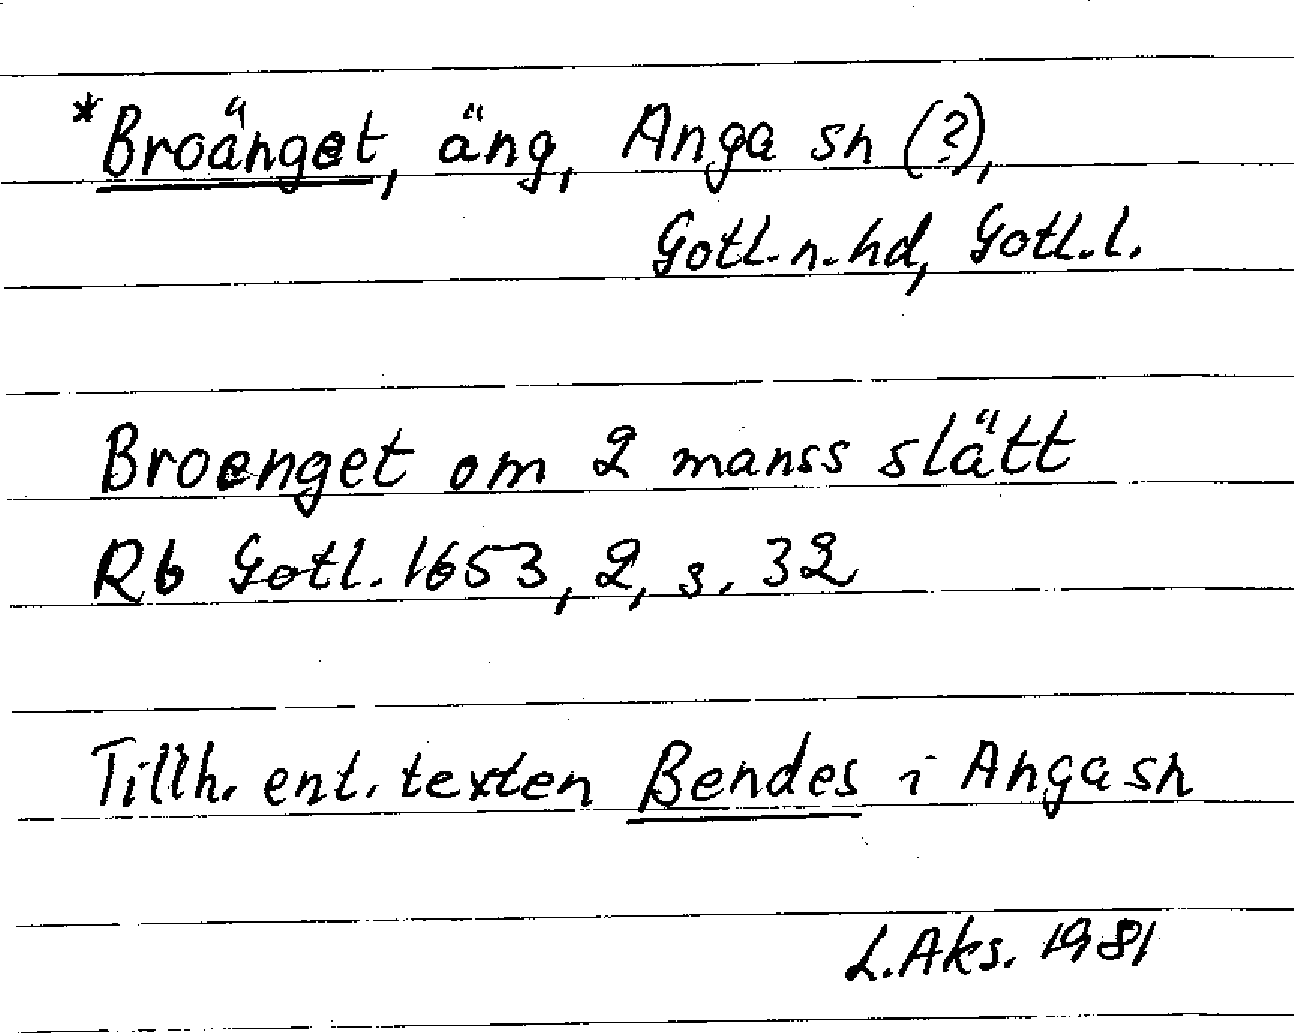 *Broänget, äng, Anga sn (?),
Gotl. n. hd, Gotl. l.
Broenget om 2 manss slätt
Rb Gotl. 1653, 2, s. 32
Tillh. enl. texten Bendes i Anga sn
L. Aks. 1981